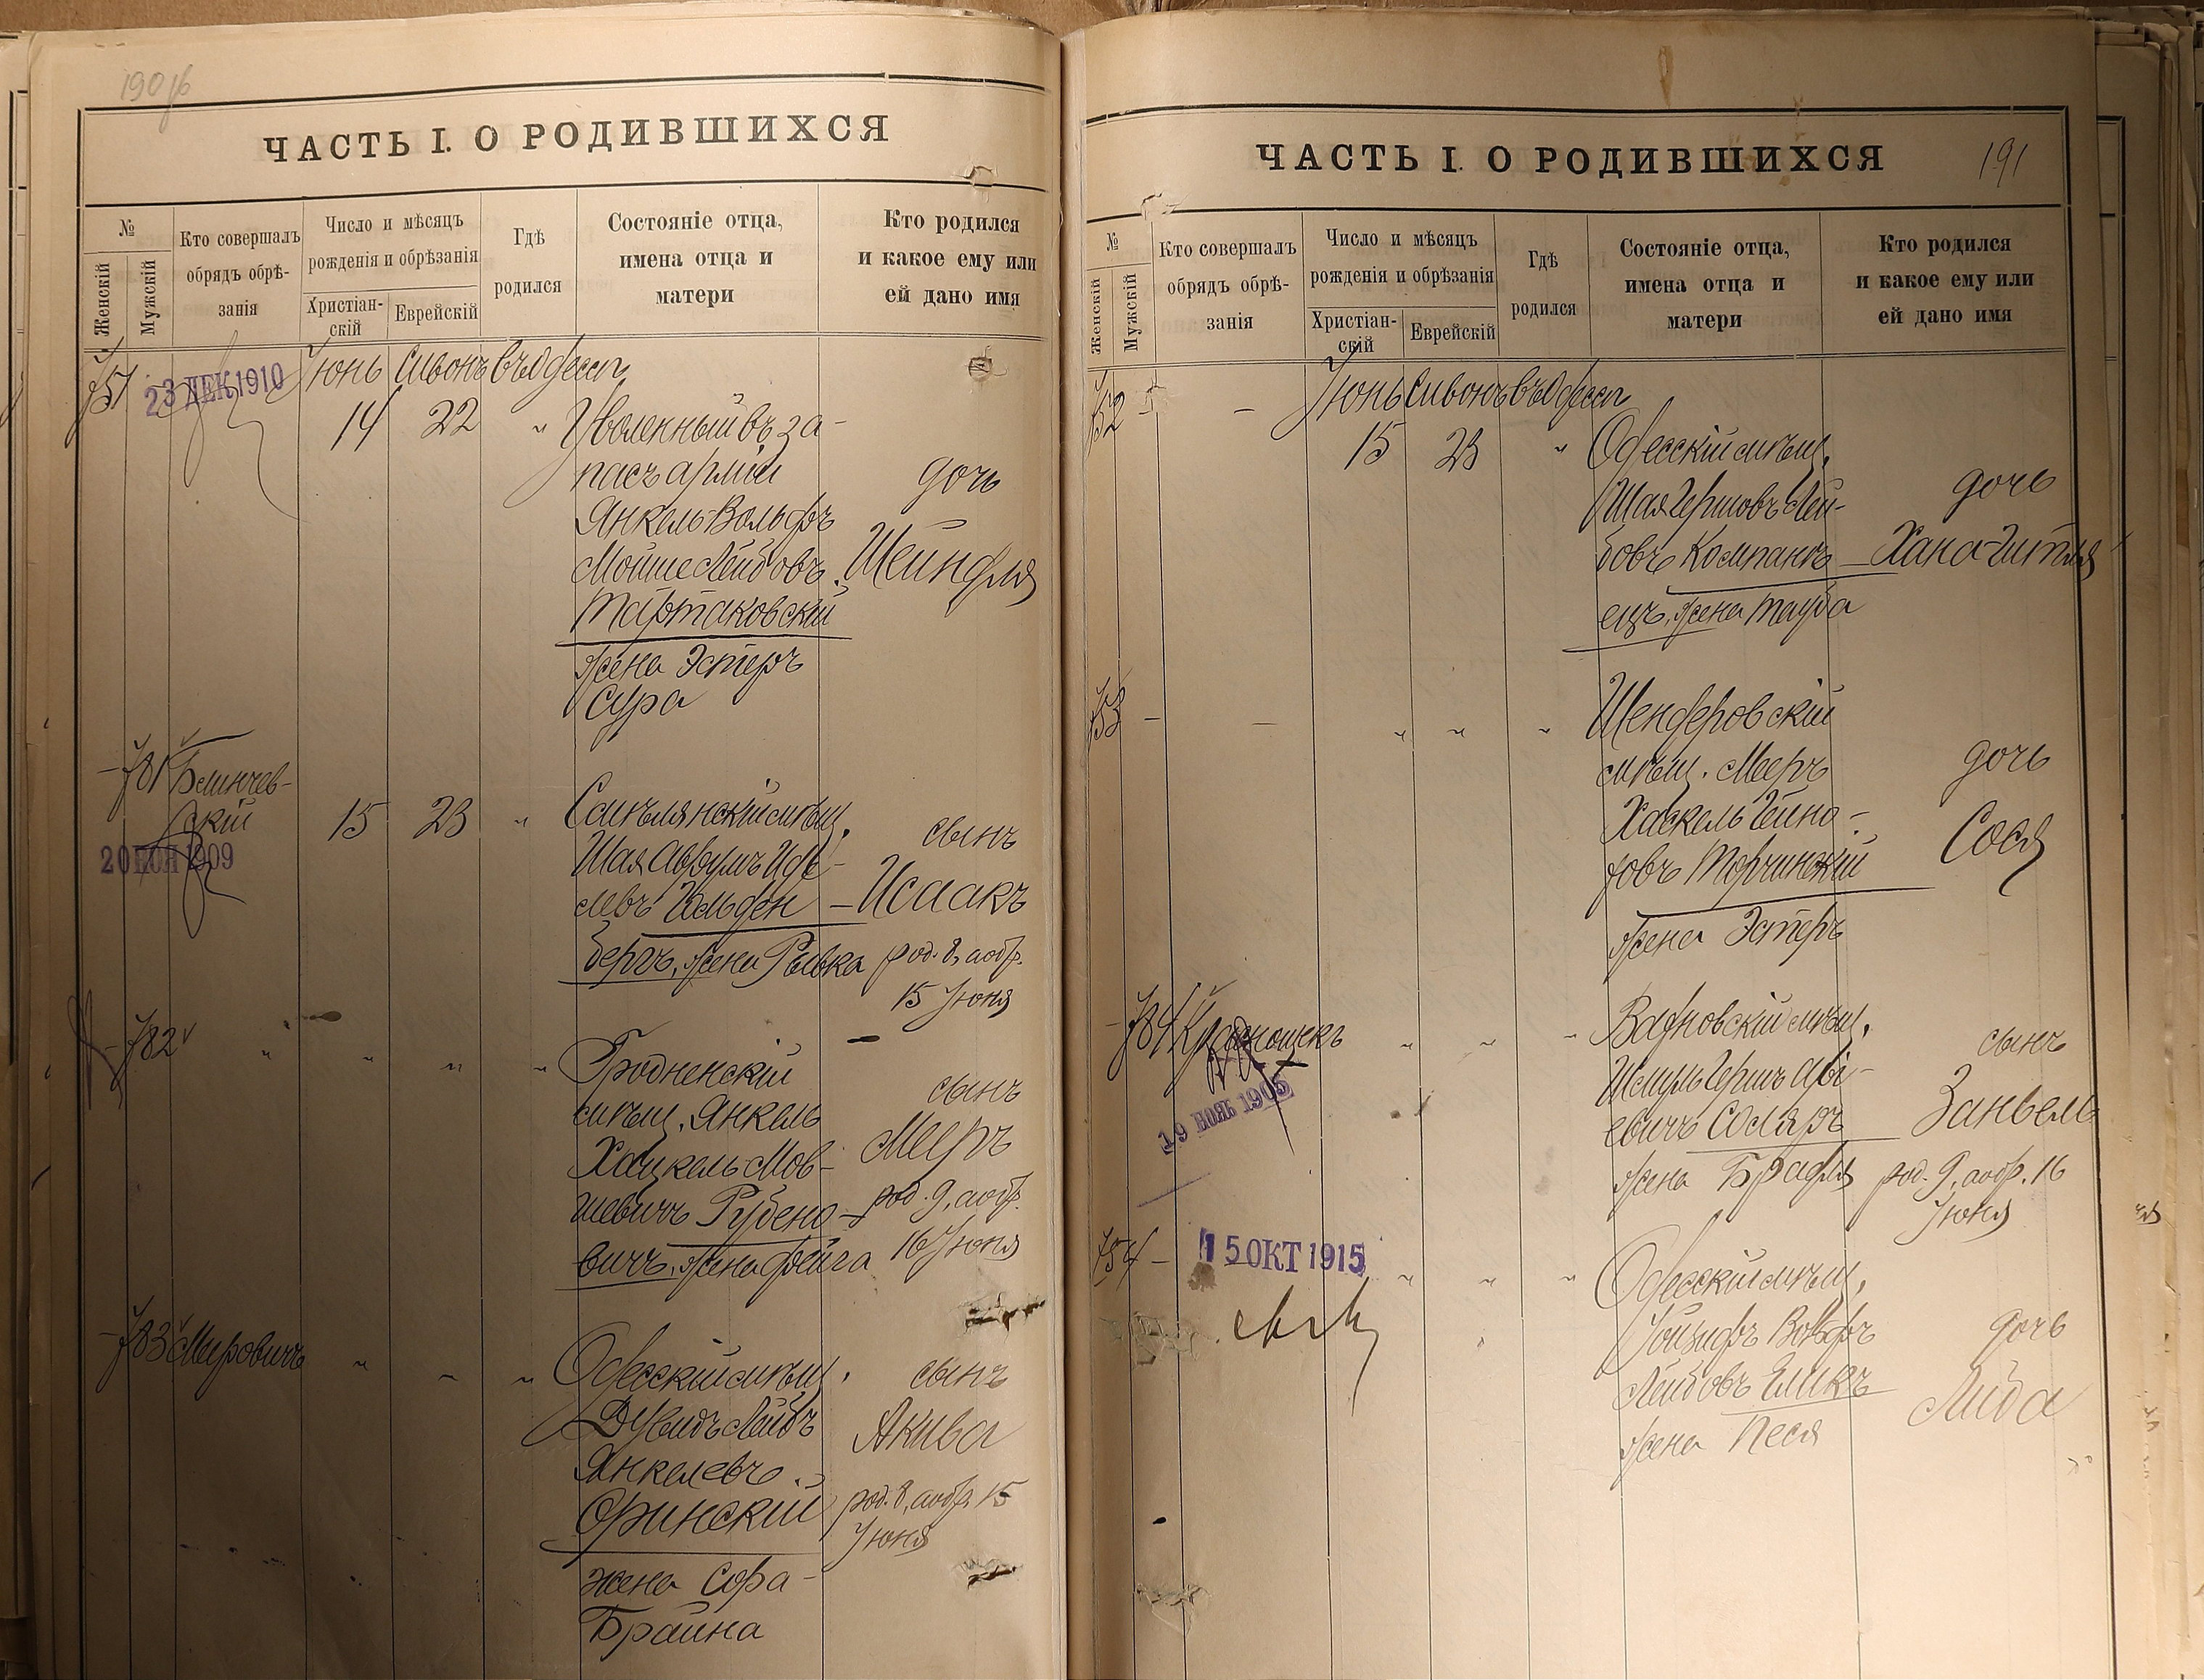 190 об
ЧАСТЬ I. О РОДИВШИХСЯ
№
Женскій
Мужскій
Кто совершалъ
обрядъ обрѣ-
занія
Число и мѣсяцъ
рожденія и обрѣзанія
Христіан-
скій
Еврейскій
Гдѣ
родился
Состояніе отца,
имена отца и
матери
Кто родился
и какое ему или
ей дано имя
751
23 ДЕК 1910
Іюнь Сивонъ въ Одессѣ
14 22 " Уволенный въ за-
пасъ арміи
Янкель-Вольфъ
Мойше Лейбовъ
Тартаковскій
жена Эстеръ
Сура
дочь
Шейндля
- 781 Блинчев-
скій
20 ІЮН 1909
15 23 "
мѣщ.
Шая Аврумъ
Гольден
бергъ, жена Ривка
сынъ
Исаакъ
род. 8, а обр.
15 Іюня
- 782 " " " "
Гродненскій
мѣщ. Янкель
Хацкель Мов-
шевичъ Рубено-
вичъ, жена Фейга
сынъ
Мееръ
род. 9, а обр.
16 Іюня
- 783 Меровичъ " " "
Одесскій мѣщ.
Дувидъ Лейбъ
Янкелевъ
Оринскій
жена Сора-
Брайна
сынъ
Акива
род. 8, а обр. 15
Іюня
ЧАСТЬ I. О РОДИВШИХСЯ
191
№
Женскій
Мужскій
Кто совершалъ
обрядъ обрѣ-
занія
Число и мѣсяцъ
рожденія и обрѣзанія
Христіан-
скій
Еврейскій
Гдѣ
родился
Состояніе отца,
имена отца и
матери
Кто родился
и какое ему или
ей дано имя
752 - -
Іюнь Сивонъ въ Одессѣ
15 23 " Одесскій мѣщ.
Шая Гершовъ Лей-
бовъ Компанѣ-
ецъ, жена Тауба
дочь
Хана-Гитля
753 - - " " "
Шендеровскій
мѣщ. Мееръ
Хаскель Гейно-
ховъ Торчинскій
жена Эстеръ
дочь
Сося
- 784 Краснощекъ " " "
19 НОЯБ 1905
мѣщ.
Шмуль Гершъ Арі-
евичъ Соляръ
жена Брафля
сынъ
Занвель
род. 9, а обр. 16
Іюня
754 -
15 ОКТ 1915
" " " Одесскій мѣщ.
Іойзифъ Вольфъ
Лейбовъ Еликъ
жена Песя
дочь
Либа